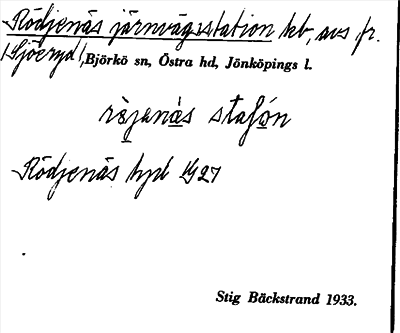 Rödjenäs järnvägsstation heb, avs fr.
Sjöeryd, Björkö sn, Östra hd, Jönköpings l.
rö̀jenä̀s stafón
Rödjenäs hpl 1927
Stig Bäckstrand 1933.